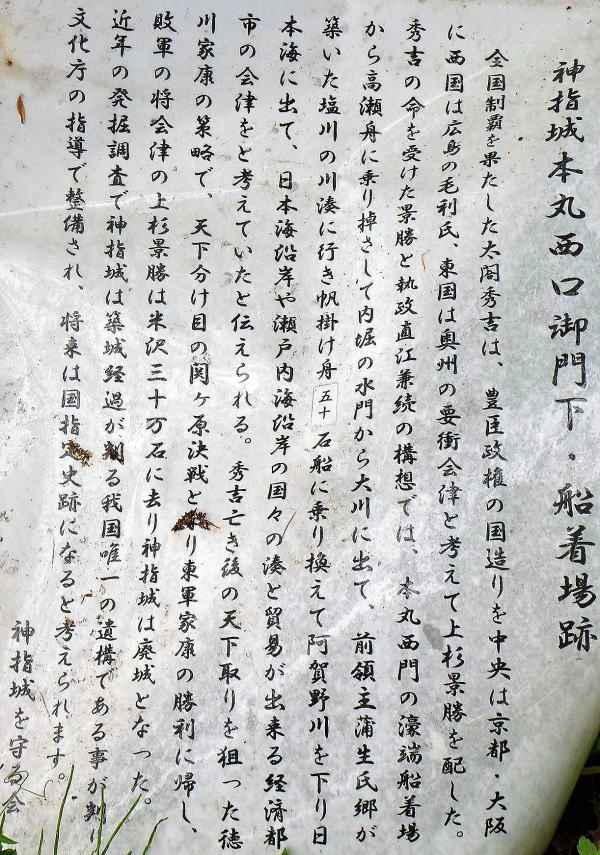 神指城本丸西口御門下・船着場跡
全国制覇を果たした太閤秀吉は、豊臣政権の国造りを中央は京都・大阪
に西国は広島の毛利氏、東国は奥州の要衝会津と考えて上杉景勝を配した。
秀吉の命を受けた景勝と執政直江兼続の構想では、本丸西門の濠端船着場
から高瀬舟に乗り掉さして内堀の水門から大川に出て、前領主蒲生氏郷が
築いた塩川の川湊に行き帆掛け舟五十石船に乗り換えて阿賀野川を下り日
本海に出て、日本海沿岸や瀬戸内海沿岸の国々の湊と貿易が出来る経済都
市の会津をと考えていたと伝えられる。秀吉亡き後の天下取りを狙った徳
川家康の策略で、天下分け目の関ヶ原決戦となり東軍家康の勝利に帰し、
敗軍の将会津の上杉景勝は米沢三十万石に去り神指城は廃城となった。
近年の発掘調査で神指城は築城経過が判る我国唯一の遺構である事が判り
文化庁の指導で整備され、将来は国指定史跡になると考えられます。
神指城を守る会